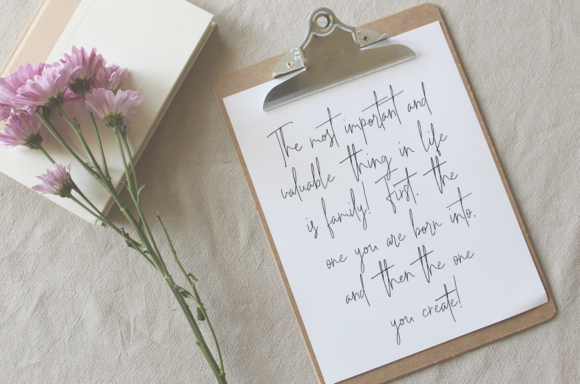 The most important and
valuable thing in life
is family! First, the
one you are born into,
and then the one
you create!